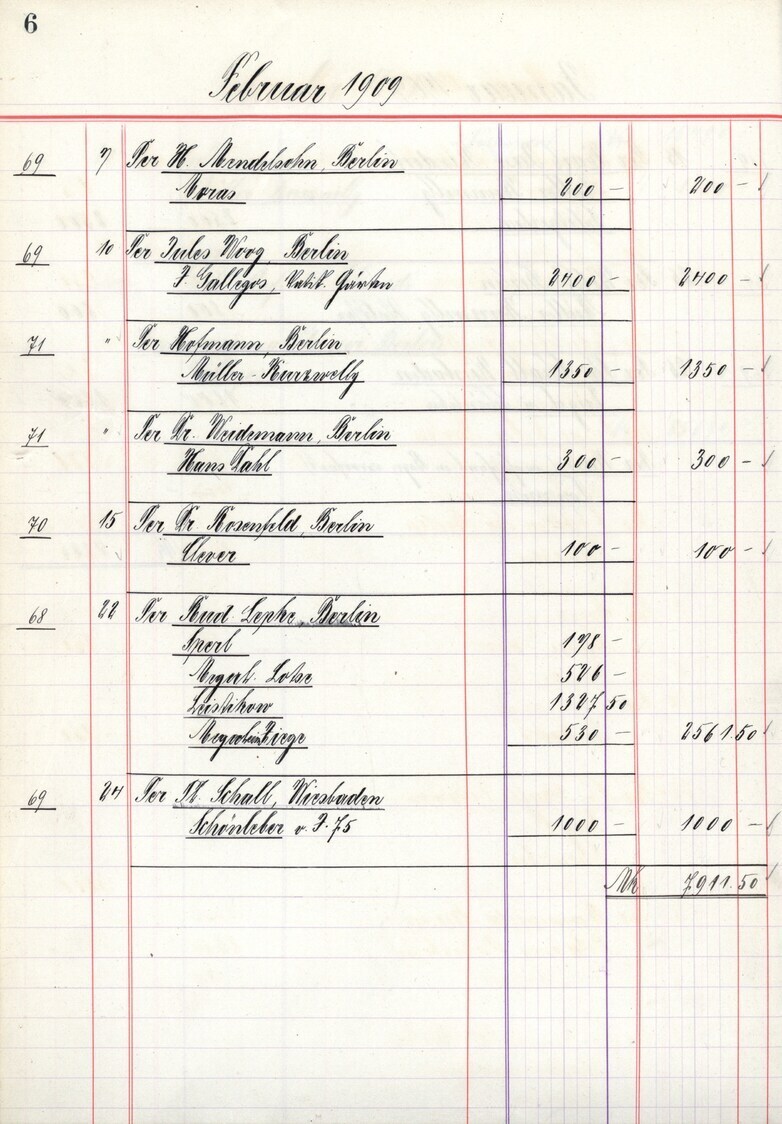 6
Februar 1909
69 7 Per H. Mendelsohn, Berlin
Moras 200 – 200 –
69 10 Per Jules Woog, Berlin
J. Gallegos, Vatik. Gärten 2400 – 2400 –
71 " Per Hofmann, Berlin
Müller-Kurzwelly 1350 – 1350 –
71 " Per Dr. Weidemann, Berlin
Hans Dahl 300 – 300 –
70 15 Per Dr. Rosenfeld, Berlin
Clever 100 – 100 –
68 22 Per Rud. Lepke, Berlin
Sperl 178 –
Megerl. Lotze 526 –
Leistikow 1327 50
530 – 2561.50
69 24 Per Th. Schall, Wiesbaden
Schönleber v. J. 75 1000 – 1000 –
Mk 7911.50